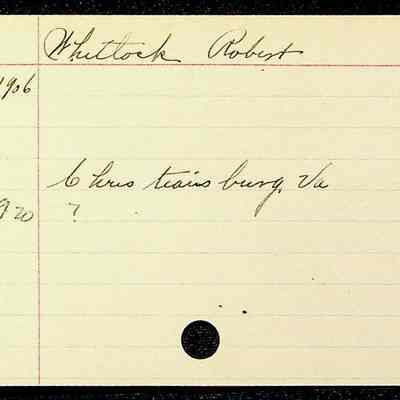 Whitlock Robert
1906
Christiansburg, Va
920 ?